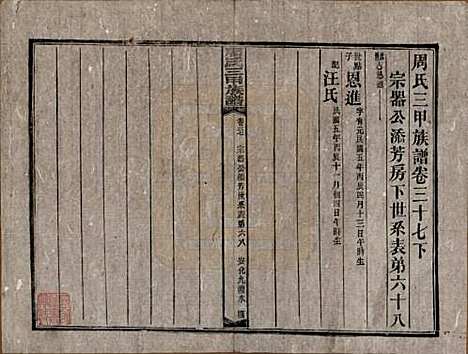 周氏三甲族譜卷三十七下
宗器公添芳房下世系表第六十八
恩進
字有元民國五年丙辰四月十三日午時生
汪氏
民國五年丙辰十一月初四日午時生
周氏三甲族譜
宗器公添芳世系表第六八